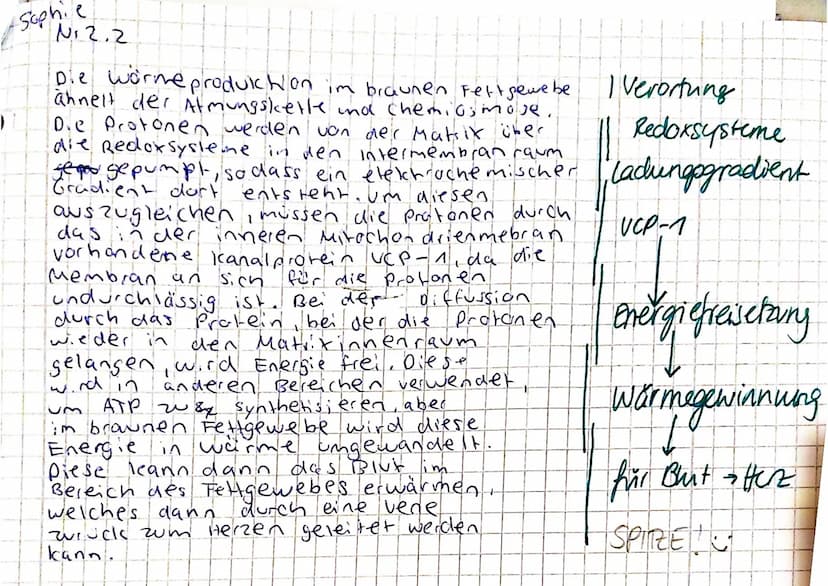 Sophie
Nr 2.2
Die Wärmeproduktion im braunen Fettgewebe
ähnelt der Atmungskette und Chemiosmose.
Die Protonen werden von der Matrix über
die Redoxsysteme in den Intermembranraum
gepumpt, sodass ein elektrochemischer
Gradient dort entsteht. Um diesen
auszugleichen, müssen die Protonen durch
das in der inneren Mitochondrienmebran
vorhandene Kanalprotein UCP-1, da die
Membran an sich für die Protonen
undurchlässig ist. Bei der Diffussion
durch das Protein, bei der die Protonen
wieder in den Matrixinnenraum
gelangen, wird Energie frei. Diese
wird in anderen Bereichen verwendet,
um ATP zu synthetisieren, aber
im braunen Fettgewebe wird diese
Energie in Wärme umgewandelt.
Diese kann dann das Blut im
Bereich des Fettgewebes erwärmen,
welches dann durch eine Vene
zurück zum Herzen geleitet werden
kann.
Verortung
Redoxsysteme
Ladungsgradient
UCP-1
↓
Energiefreisetzung
↓
Wärmegewinnung
↓
für Blut → Herz
SPITZE!